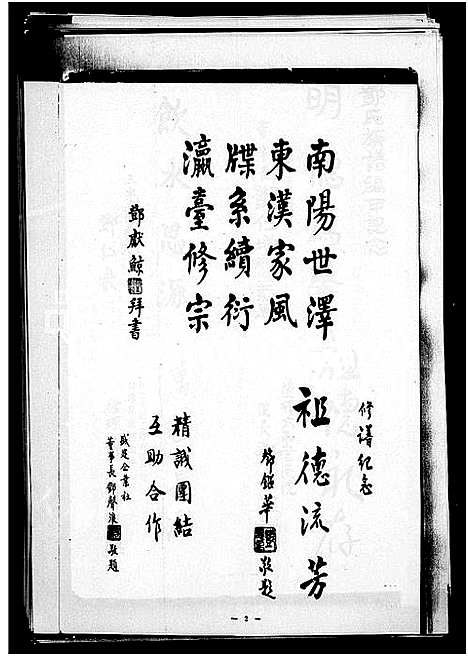 南陽世澤
東漢家風
牒系續衍
瀛臺修宗
鄧獻鯨拜書
修譜紀念
祖德流芳
敬題
精誠團結
互助合作
企業社
董事長鄧聲浪敬題
— 2 —